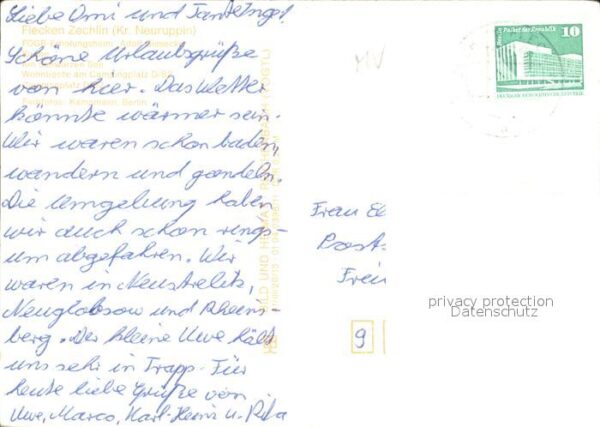 Liebe Omi und Tante Inge!
Flecken Zechlin (Kr. Neuruppin)
Schöne Urlaubsgrüße
von hier. Das Wetter
könnte wärmer sein.
Wir waren schon baden,
wandern und gondeln.
Die Umgebung haben
wir auch schon rings-
um abgefahren. Wir
waren in Neustrelitz,
Neuglobsow und Rheins-
berg. Der kleine Uwe hält
uns sehr in Trapp. Für
heute liebe Grüße von
Uwe, Marco, Karl-Heinz u. Rita
BILD UND HEIMAT REICHENBACH (VOGTL)
10
Palast der Republik
MV
Frau
Posts
Frei
9
privacy protection
Datenschutz